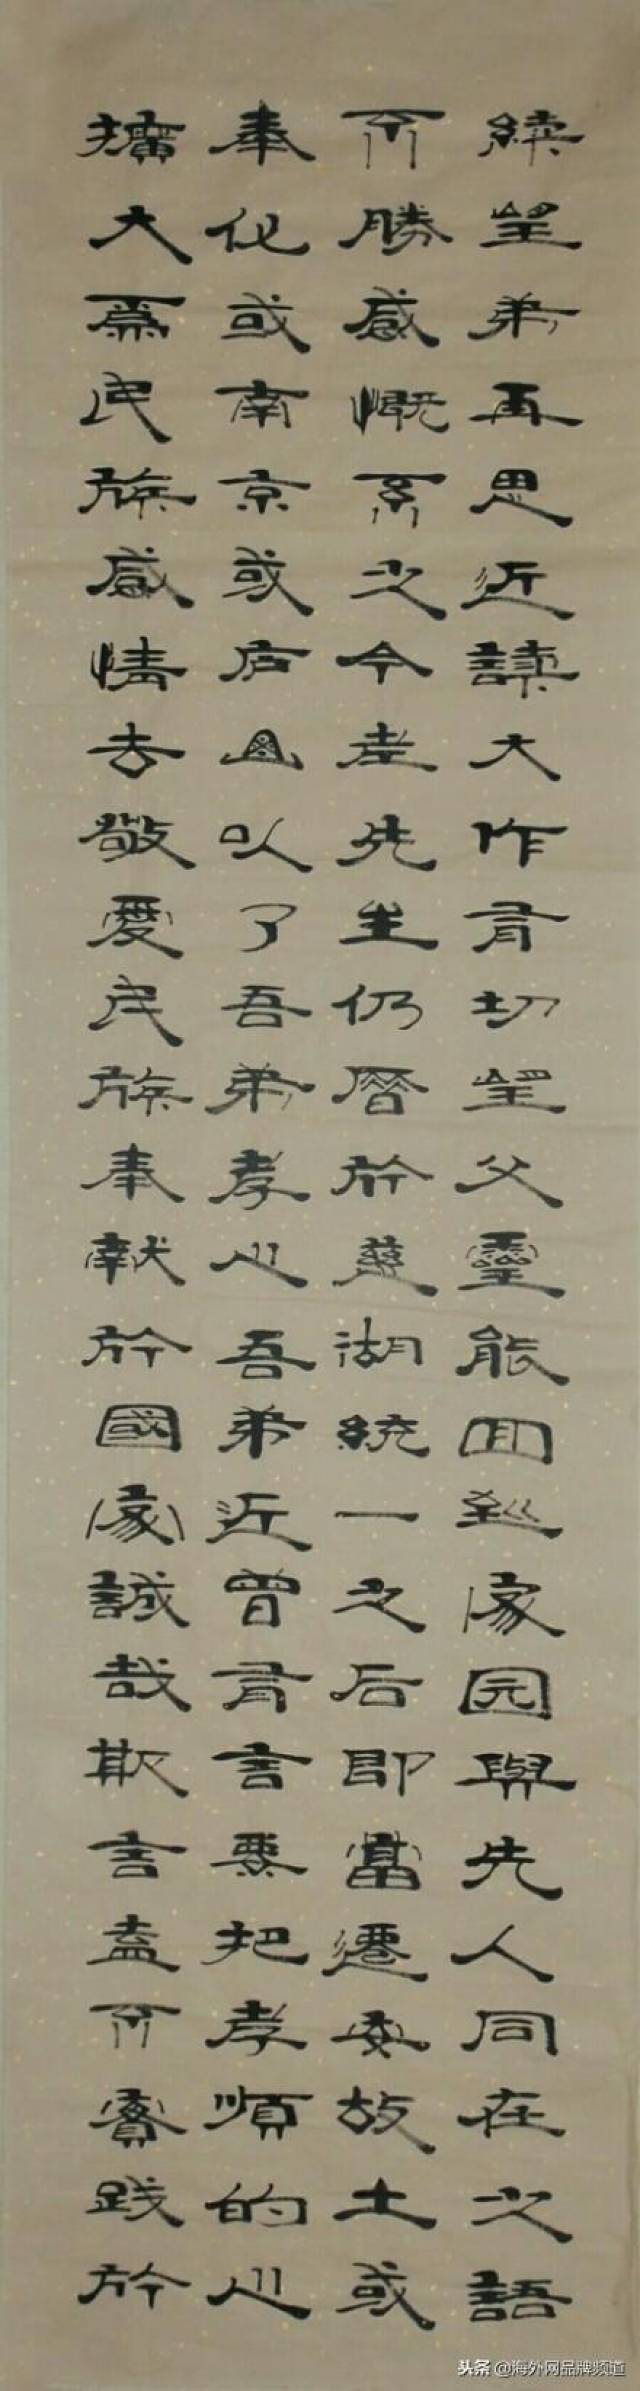 續望弟再思近讀大作有切望父靈能回到家园與先人同在之語
不勝感慨系之今老先生仍厝於慈湖統一之后即當遷安故土或
奉化或南京或庐山以了吾弟孝心吾弟近曾有言要把孝順的心
擴大爲民族感情去敬愛民族奉献於國家誠哉斯言盍不實践於
头条 @海外网品牌频道